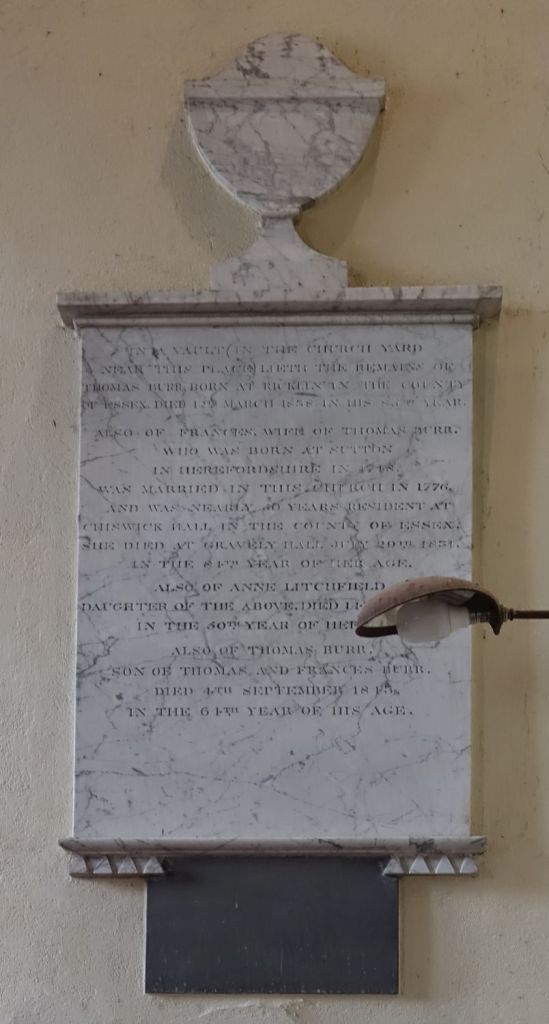 IN A VAULT (IN THE CHURCH YARD
NEAR THIS PLACE) LIETH THE REMAINS OF
THOMAS BURR, BORN AT RICKLIN IN THE COUNTY
OF ESSEX, DIED MARCH IN HIS YEAR.
ALSO OF FRANCES, WIFE OF THOMAS BURR,
WHO WAS BORN AT SUTTON
IN HEREFORDSHIRE IN
WAS MARRIED IN THIS CHURCH IN 1776,
AND WAS NEARLY YEARS RESIDENT AT
CHISWICK HALL IN THE COUNTY OF ESSEX;
SHE DIED AT GRAVELY HALL JULY 20TH
IN THE 84TH YEAR OF HER AGE.
ALSO OF ANNE LITCHFIELD
DAUGHTER OF THE ABOVE, DIED
IN THE 50TH YEAR OF HER
ALSO OF THOMAS BURR,
SON OF THOMAS AND FRANCES BURR,
DIED 4TH SEPTEMBER
IN THE 64TH YEAR OF HIS AGE.